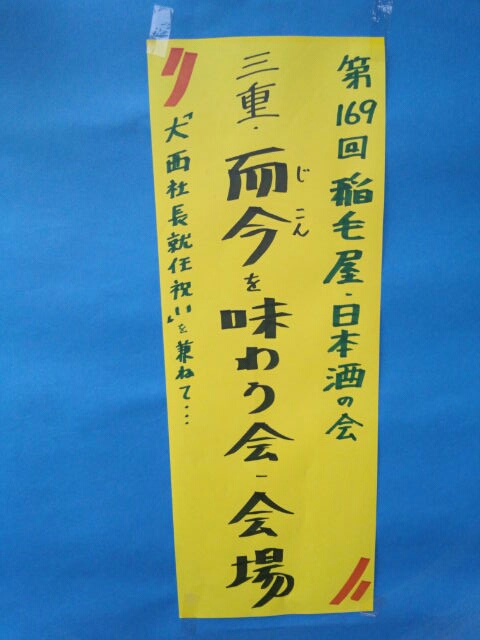 第169回 稲毛屋・日本酒の会
三重・而今を味わう会-会場
じこん
『大西社長就任祝い』を兼ねて…